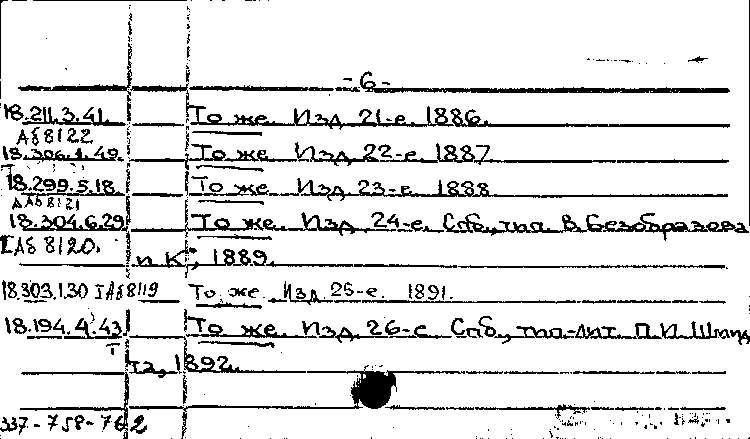 -6-
18.211.3.41. То же. Изд. 21-е. 1886.
Аб 8122
18.306.1.49. То же. Изд. 22-е. 1887
18.299.5.18. То же. Изд. 23-е. 1888
Аб 8121
18.304.6.29 То же. Изд. 24-е. Спб., тип. В. Безобразова
Аб 8120. и К°, 1889.
18.303.1.30 Аб 8119 То же. Изд. 25-е. 1891.
18.194.4.43 То же. Изд. 26-е. Спб., типо-лит. П.И. Шмид
та, 1892.
337-758-762